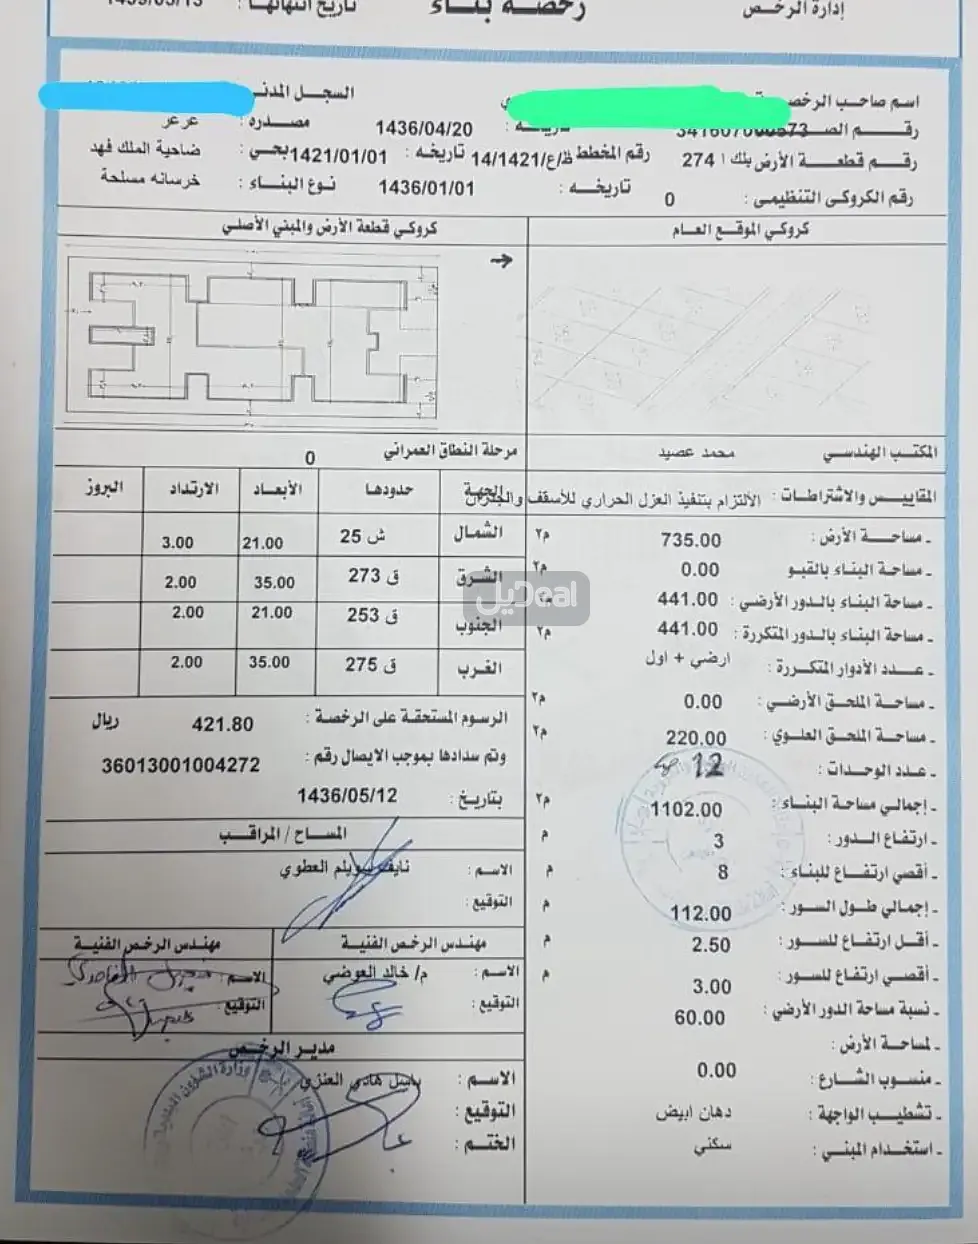 إدارة الرخص
رخصة بناء
تاريخ انتهائها :
اسم صاحب الرخصة
السجل المدني
رقم الصك
تاريخه : 1436/04/20
مصدره : عرعر
رقم قطعة الأرض 274 بلك
رقم المخطط 14/1421/ع/ط تاريخه : 1421/01/01 بحي : ضاحية الملك فهد
رقم الكروكي التنظيمي : 0
تاريخه : 1436/01/01
نوع البناء : خرسانه مسلحة
كروكي الموقع العام
كروكي قطعة الأرض والمبني الأصلي
المكتب الهندسي محمد عصيد
المقاييس والاشتراطات : الألتزام بتنفيذ العزل الحراري للأسقف والجدران
- مساحة الأرض : 735.00 م٢
- مساحة البناء بالقبو 0.00 م٢
- مساحة البناء بالدور الأرضي : 441.00 م٢
- مساحة البناء بالدور المتكررة : 441.00 م٢
- عدد الأدوار المتكررة : ارضي + اول
- مساحة الملحق الأرضي : 0.00 م٢
- مساحة الملحق العلوي : 220.00 م٢
- عدد الوحدات : 12
- إجمالي مساحة البناء : 1102.00 م٢
- ارتفاع الدور : 3 م
- أقصي ارتفاع للبناء : 8 م
- إجمالي طول السور : 112.00 م
- أقل ارتفاع للسور : 2.50 م
- أقصي ارتفاع للسور : 3.00 م
- نسبة مساحة الدور الأرضي : 60.00
- لمساحة الأرض :
- منسوب الشارع : 0.00
- تشطيب الواجهة : دهان ابيض
- استخدام المبني : سكني
مرحلة النطاق العمراني 0
الجهة حدودها الأبعاد الارتداد البروز
الشمال ش 25 21.00 3.00
الشرق ق 273 35.00 2.00
الجنوب ق 253 21.00 2.00
الغرب ق 275 35.00 2.00
الرسوم المستحقة على الرخصة : 421.80 ريال
وتم سدادها بموجب الايصال رقم : 36013001004272
بتاريخ : 1436/05/12
المساح / المراقب
الاسم : نايف سويلم العطوي
التوقيع :
مهندس الرخص الفنية
الاسم : م/ خالد العوضي
التوقيع :
مهندس الرخص الفنية
الاسم :
التوقيع :
مدير الرخص
الاسم : نايل هادي العنزي
التوقيع :
الختم :
ديل Deal